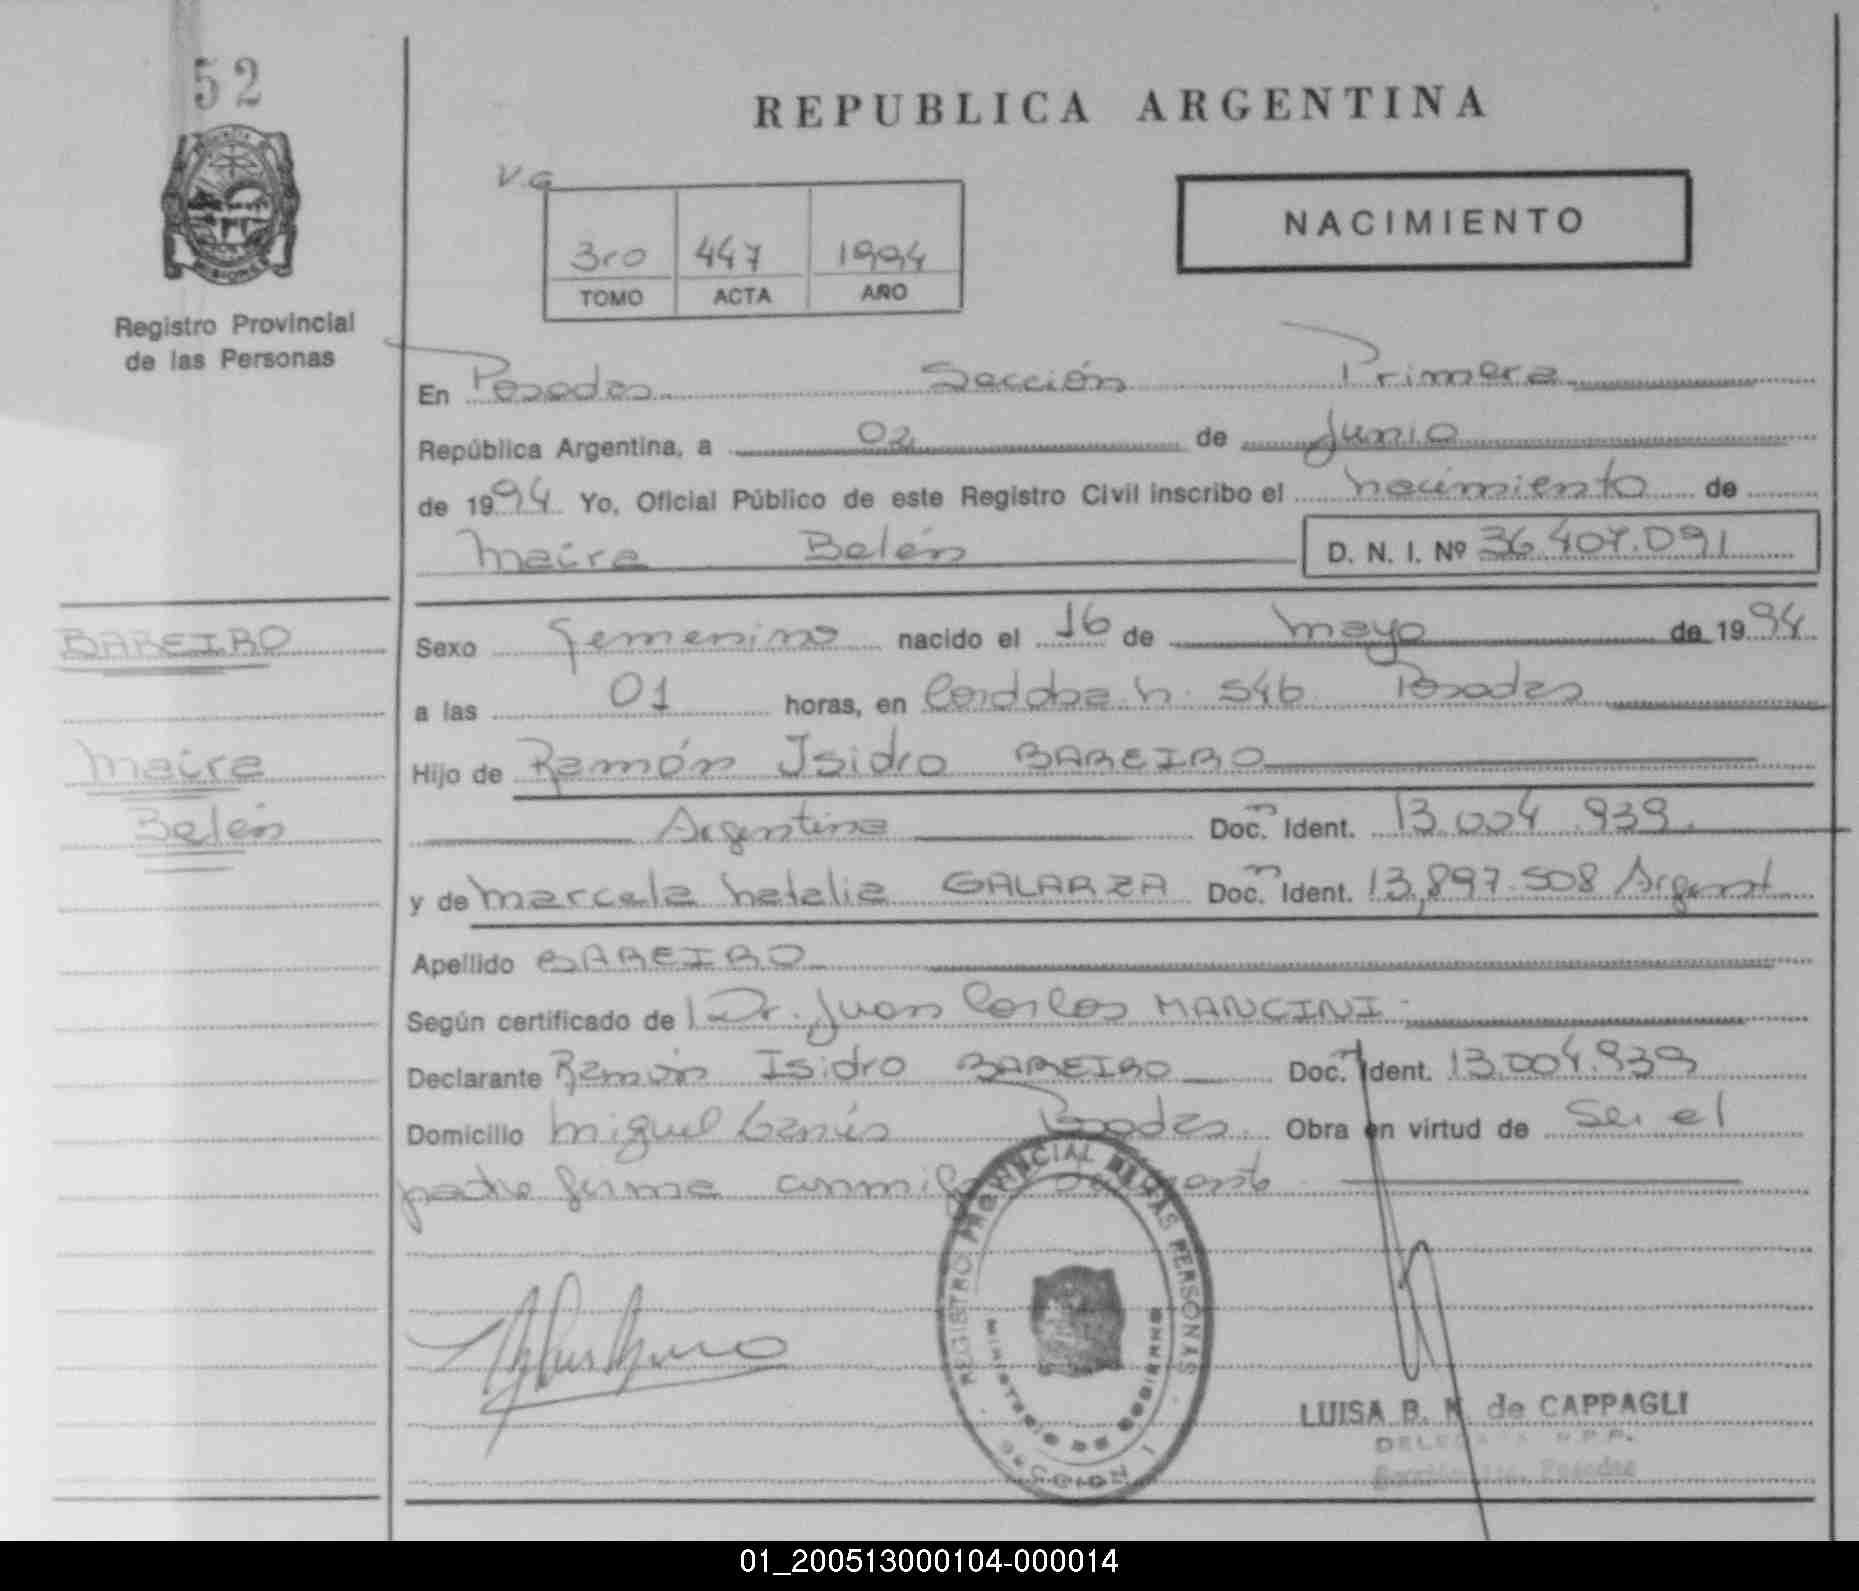 52
REPUBLICA ARGENTINA
V.G
3ro 447 1994
TOMO ACTA AÑO
NACIMIENTO
Registro Provincial
de las Personas
En Posadas Sección Primera
República Argentina, a 02 de Junio
de 1994. Yo, Oficial Público de este Registro Civil inscribo el nacimiento de
Maira Belén D. N. I. Nº 36.407.091
BAREIRO
Maira
Belén
Sexo femenino nacido el 16 de mayo de 1994
a las 01 horas, en Cordoba n. 546 Posadas
Hijo de Ramón Isidro BAREIRO
Argentina Doc. Ident. 13.004.939.
y de Marcela Natalia GALARZA Doc. Ident. 13,897.508 Argent
Apellido BAREIRO
Según certificado de Dr. Juan Carlos MANCINI
Declarante Ramón Isidro BAREIRO Doc. Ident. 13.004.939
Domicilio Miguel Posadas. Obra en virtud de ser el
padre firma
REGISTRO PROVINCIAL DE LAS PERSONAS
MINISTERIO DE GOBIERNO
SECCION 1
LUISA B. de CAPPAGLI
DELEGADA R.P.P.
Posadas
01_200513000104-000014